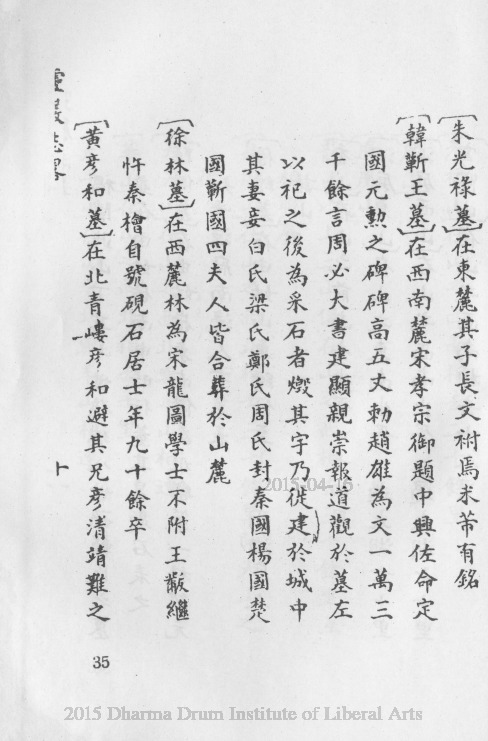 〔朱光祿墓〕在東麓其子長文祔焉米芾有銘
〔韓蘄王墓〕在西南麓宋孝宗御題中興佐命定
國元勲之碑碑高五丈勑趙雄為文一萬三
千餘言周必大書建顯親崇報道觀於墓左
以祀之後為采石者燬其宇乃徙建於城中
其妻妾白氏梁氏鄭氏周氏封秦國楊國楚
國蘄國四夫人皆合葬於山麓
〔徐林墓〕在西麓林為宋龍圖學士不附王黻繼
忤秦檜自號硯石居士年九十餘卒
〔黃彥和墓〕在北青嶁彥和避其兄彥清靖難之
靈巖志畧
卜
35
2015-04-15
2015 Dharma Drum Institute of Liberal Arts